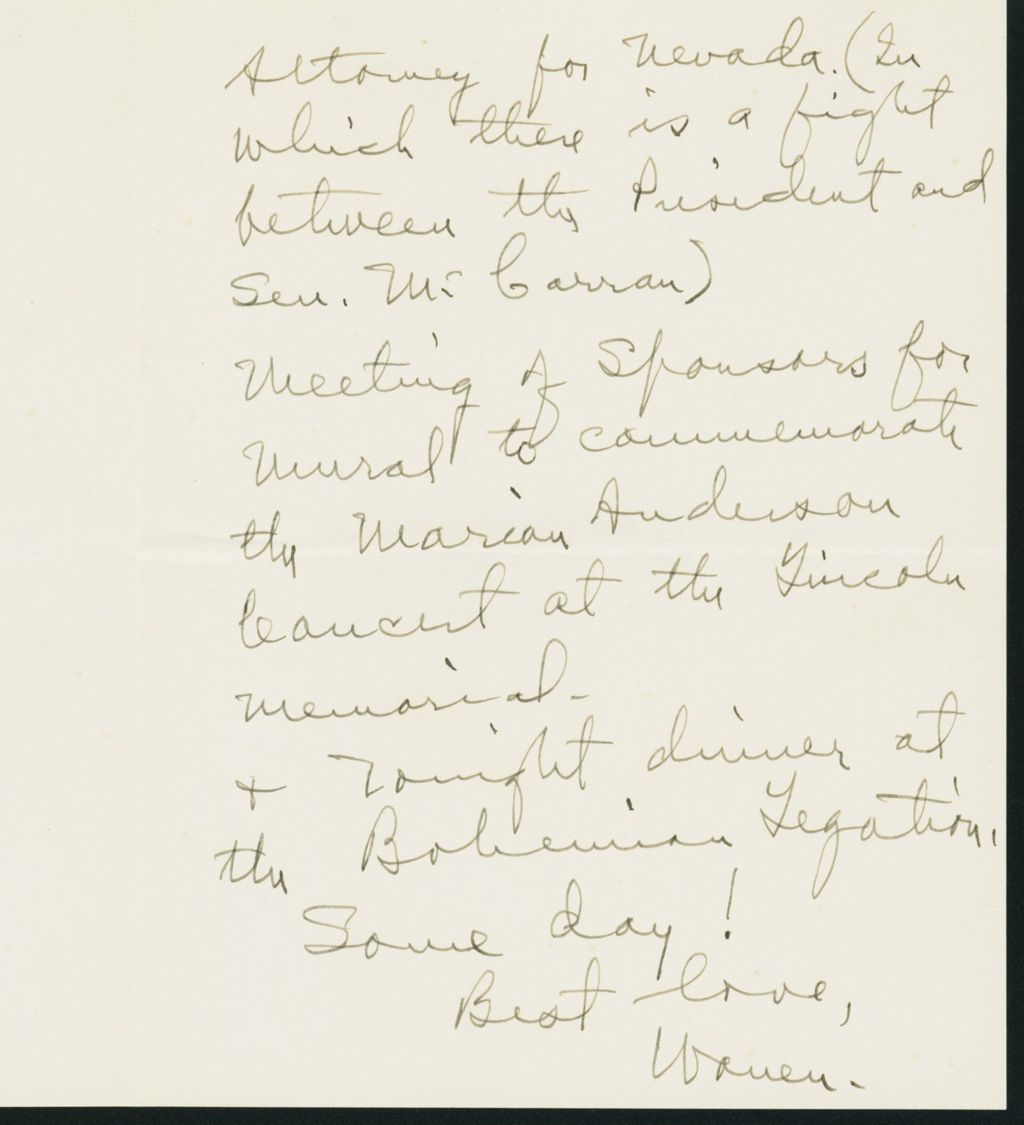 Attorney for Nevada. (In
which there is a fight
between the President and
Sen. Mc Carran)
Meeting of Sponsors for
Mural to commemorate
the Marian Anderson
Concert at the Lincoln
memorial -
+ Tonight dinner at
the Bohemian Legation.
Some day!
Best love,
Warren.